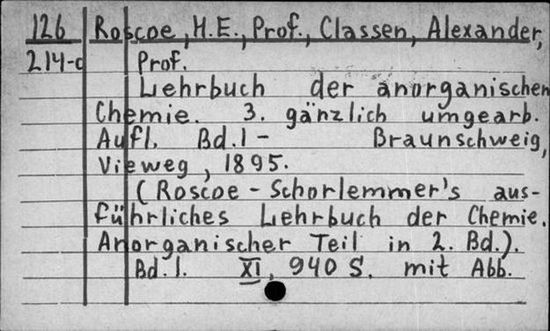 126 Roscoe, H.E., Prof., Classen, Alexander,
214-c Prof.
Lehrbuch der anorganischen
Chemie. 3. gänzlich umgearb.
Aufl. Bd.1- Braunschweig,
Vieweg, 1895.
(Roscoe-Schorlemmer's aus-
führliches Lehrbuch der Chemie.
Anorganischer Teil in 2. Bd.).
Bd.1. XI, 940 S. mit Abb.